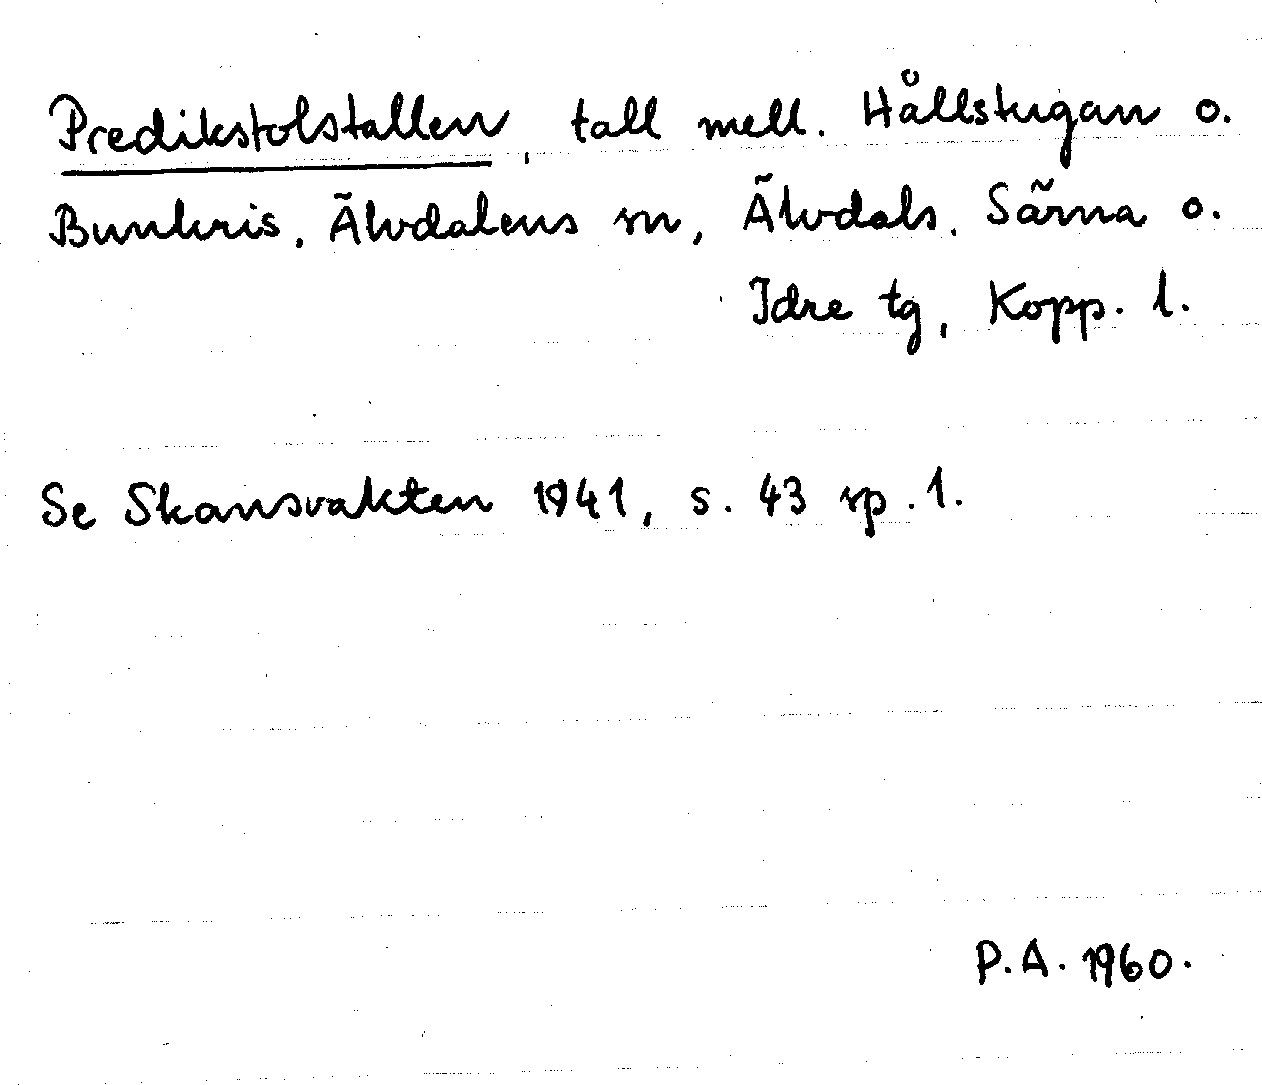 Predikstolstallen, tall mell. Hållstugan o.
Bunkris, Älvdalens sn, Älvdals, Särna o.
Idre tg, Kopp. l.
Se Skansvakten 1941, s. 43 sp. 1.
P.A. 1960.